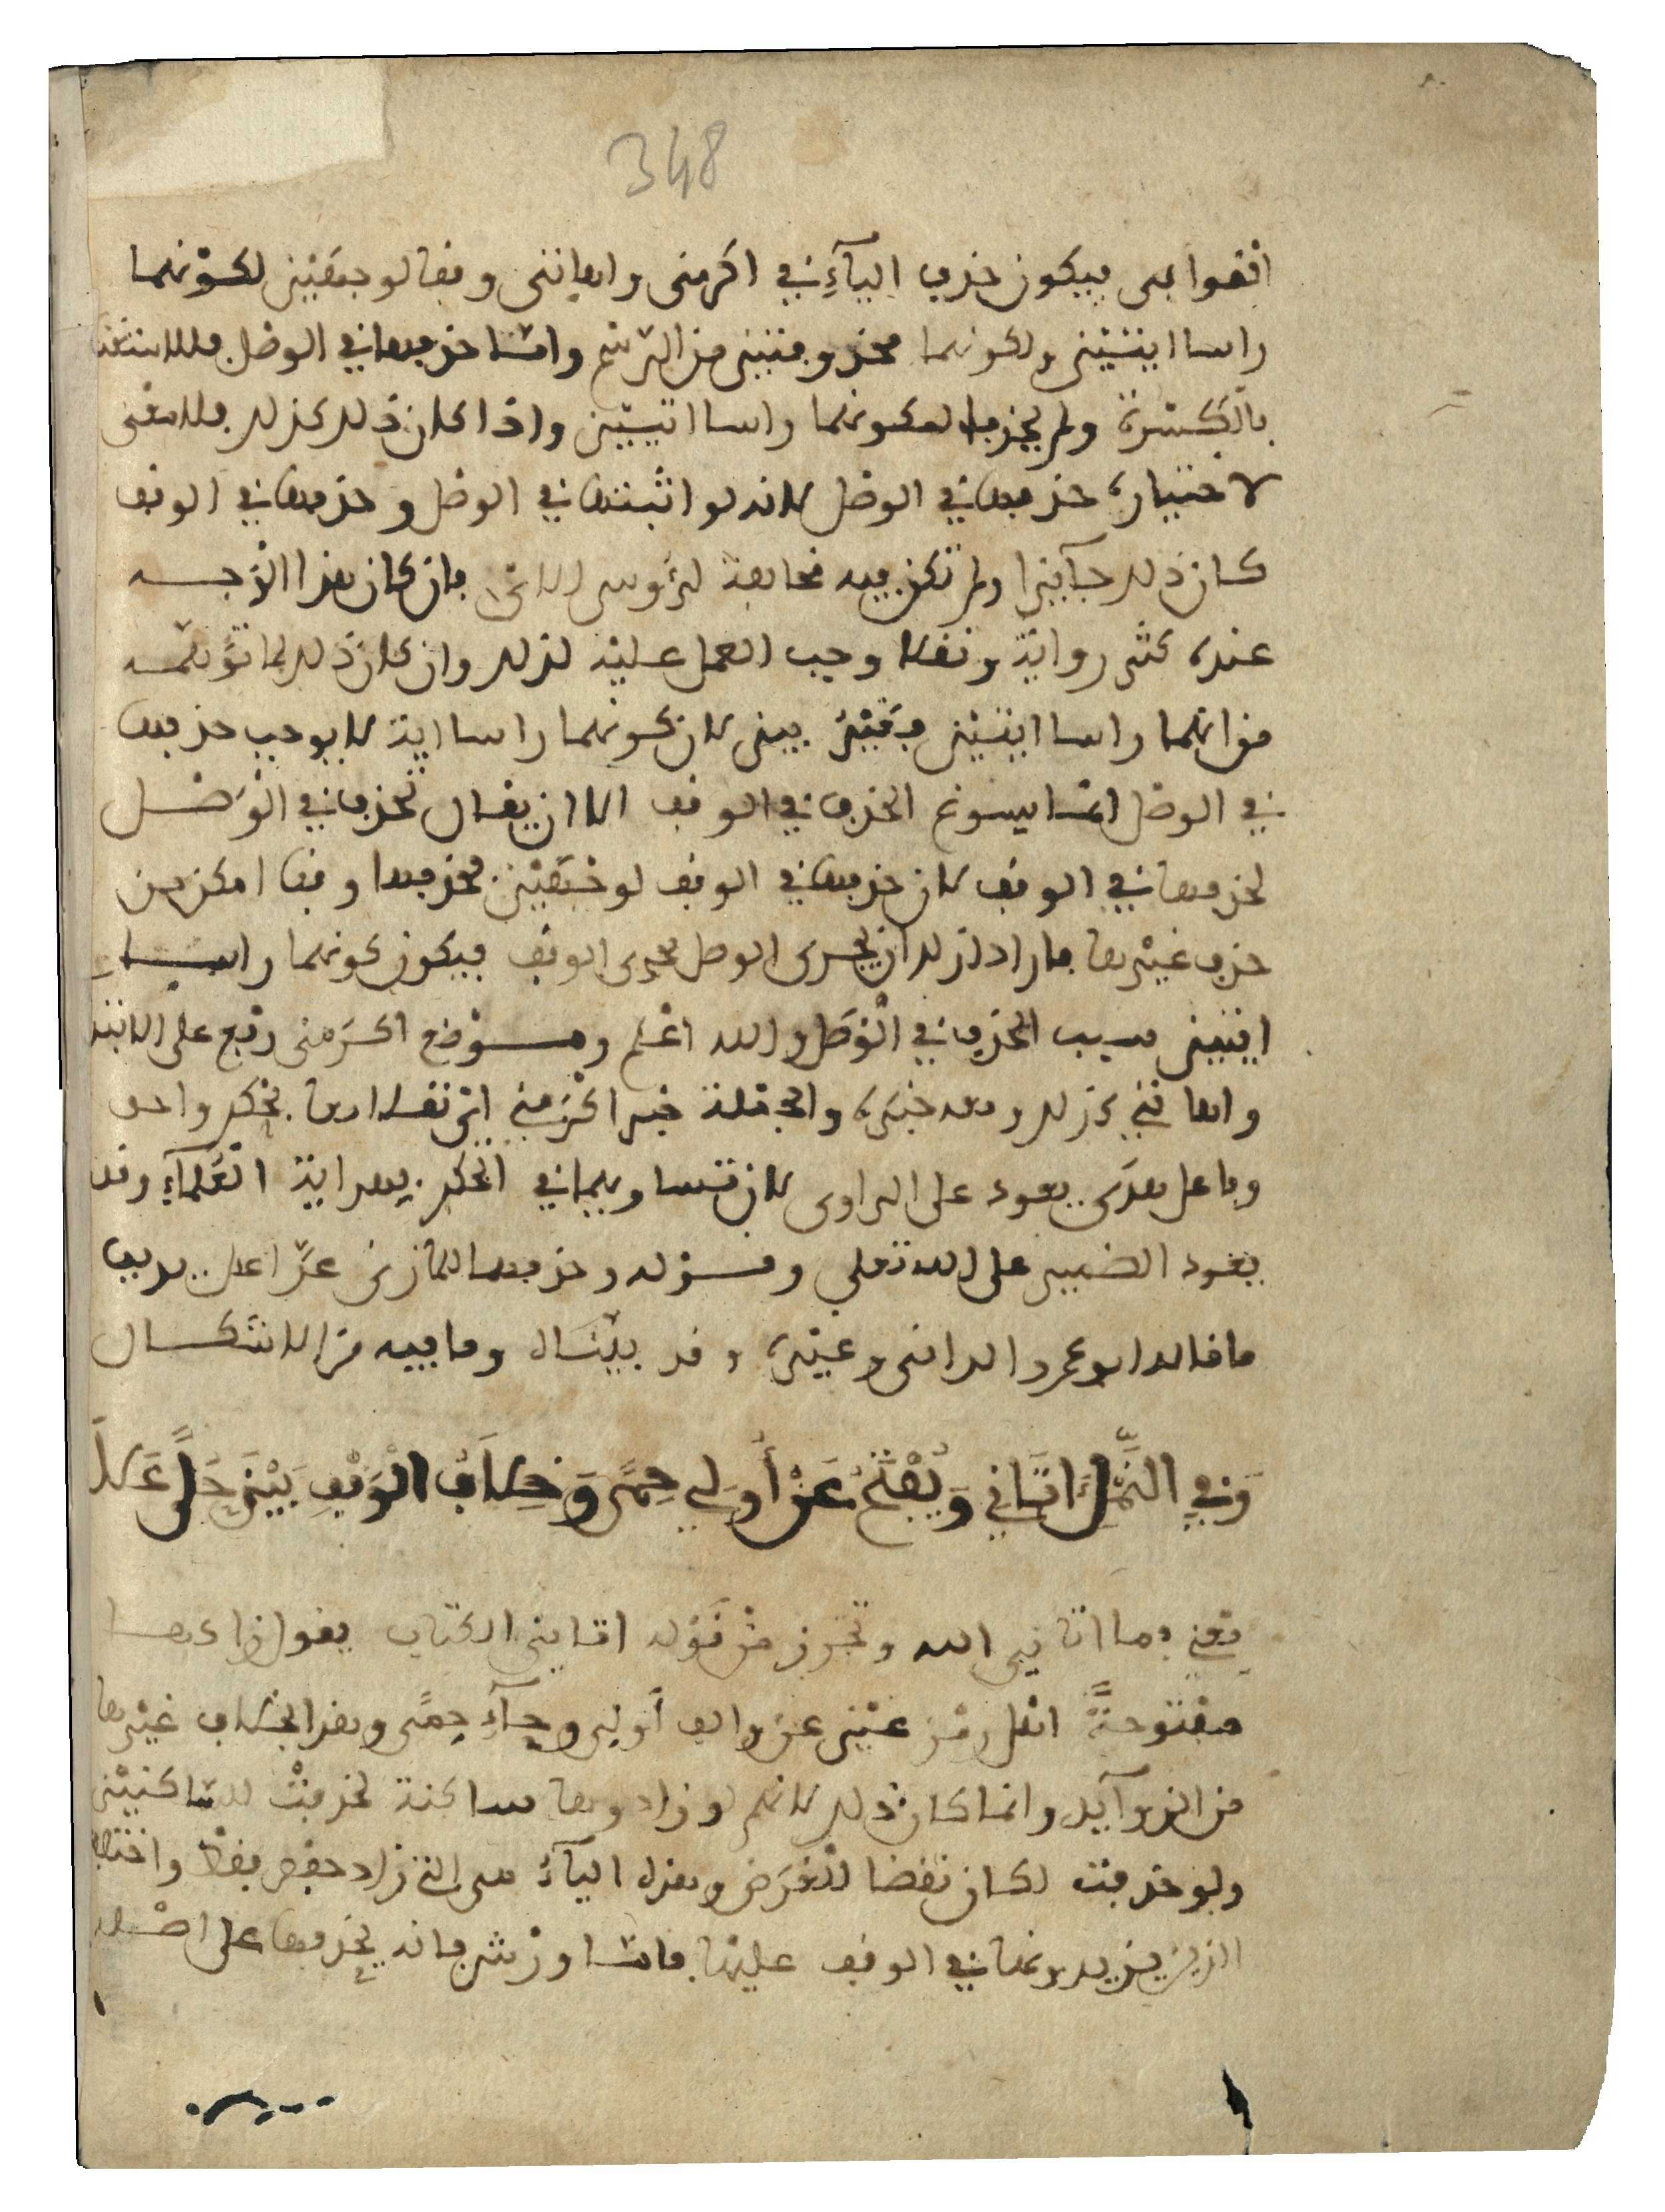 348
القوافي فيكون حذف الياء في اكرمنى واهاننى وقفا لوجهين لكونهما
راسا ايتين ولكونهما محذوفتين من الرسم وامّا حذفها في الوصل فللاستغنا
بالكسرة ولم يحذفها لكونهما راسا ايتين واذا كان ذلك كذلك فلا معنى
لاختياره حذفها في الوصل لانه لو اثبتها في الوصل وحذفها في الوقف
كان ذلك جآيزا ولم تكن فيه مخالفة لرءوس الاى فان كان هذا الوجه
عنده كثر رواية ونقلا وجب العمل عليه لذلك وان كان ذلك لما توهمه
من انهما راسا ايتين فبيّن لان كونهما راسا اية لا يوجب حذفها
في الوصل انما يسوغ الحذف في الوقف الا ان يقال تحذف في الوصل
لحذفها في الوقف لان حذفها في الوقف لوجهين فحذفها وقفا امكن من
حذف غيرها فاراد لذلك ان يجرى الوصل مجرى الوقف فيكون كونهما راسا
ايتين سبب الحذف في الوصل والله اعلم وموضع اكرمنى رفع على الابتدا
واهاننى كذلك وهو خبره والجملة خبر اكرمنى اى نقلا ادها بحكم واحد
وفاعل هدى يعود على الراوى لان تساويهما في الحكم يهداية العلماء وقد
يعود الضمير على الله تعلى وقوله وحذفهما للمازنى عدّ اعدل يريد
ما قاله ابو عمرو الدانى وغيره وقد بينّاه وما فيه من الاشكال
وَفِي النَّمْلِ اتَانِي وَيُفْتَحُ عَنْ أُولِي حِمًى وَخِلَافُ الْوَقْفِ بَيْنَ حُلًى عَلَا
يعنى فما اتانى الله وتحرز من قوله اتانى الكتاب يقول قراءتها
مفتوحة انقل رمز عين عن والف اولى وحاء حِمًى وهذا بخلاف غيرها
من الزوآيد وانما كان ذلك لانهم لو زادوها ساكنة لحذفت للساكنين
ولو حذفت لكان نقضا للغرض وهذه الياء هى التى زاد حفص فقط واختلف
الذين يزيدونها في الوقف عليها فامّا ورش فانه يحذفها على اصله